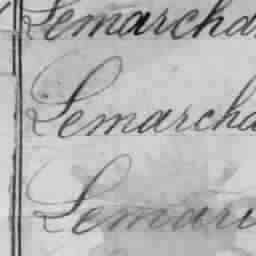 Lemarcha
Lemarcha
Lemar